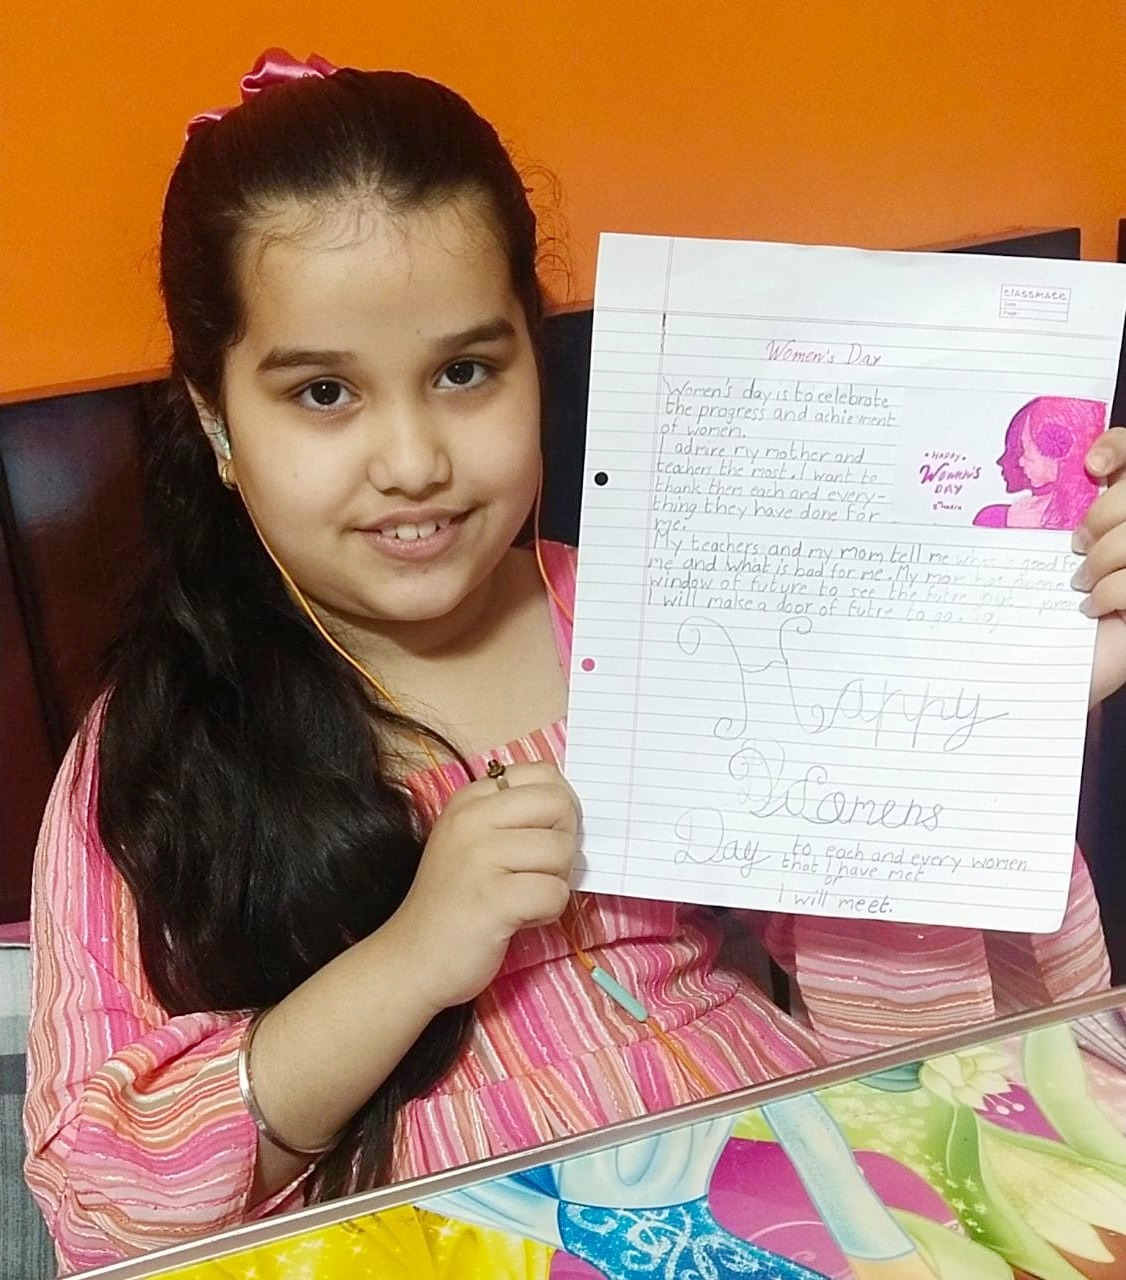 CLASSMATE
Date :
Page :
Women's Day
Women's day is to celebrate
the progress and achievment
of women.
I admire my mother and
teachers the most. I want to
thank them each and every-
thing they have done for
me.
• HAPPY •
WOMEN'S
DAY
8th MARCH
My teachers and my mom tell me what is good fo
me and what is bad for me. My mom has opene
window of future to see the futre
I will make a door of futre to go. So,
Happy
Womens
Day to each and every women
that I have met
or
I will meet.